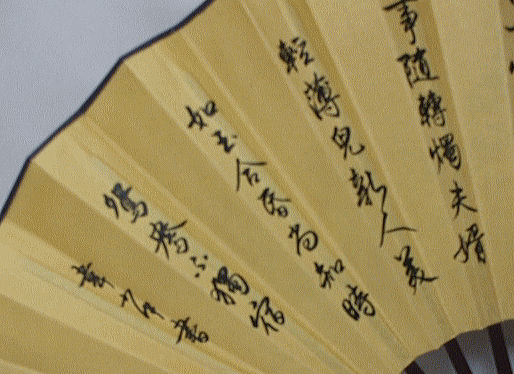 事隨轉燭夫婿
輕薄兒新人美
如玉合昏尚知時
鴛鴦不獨宿
書